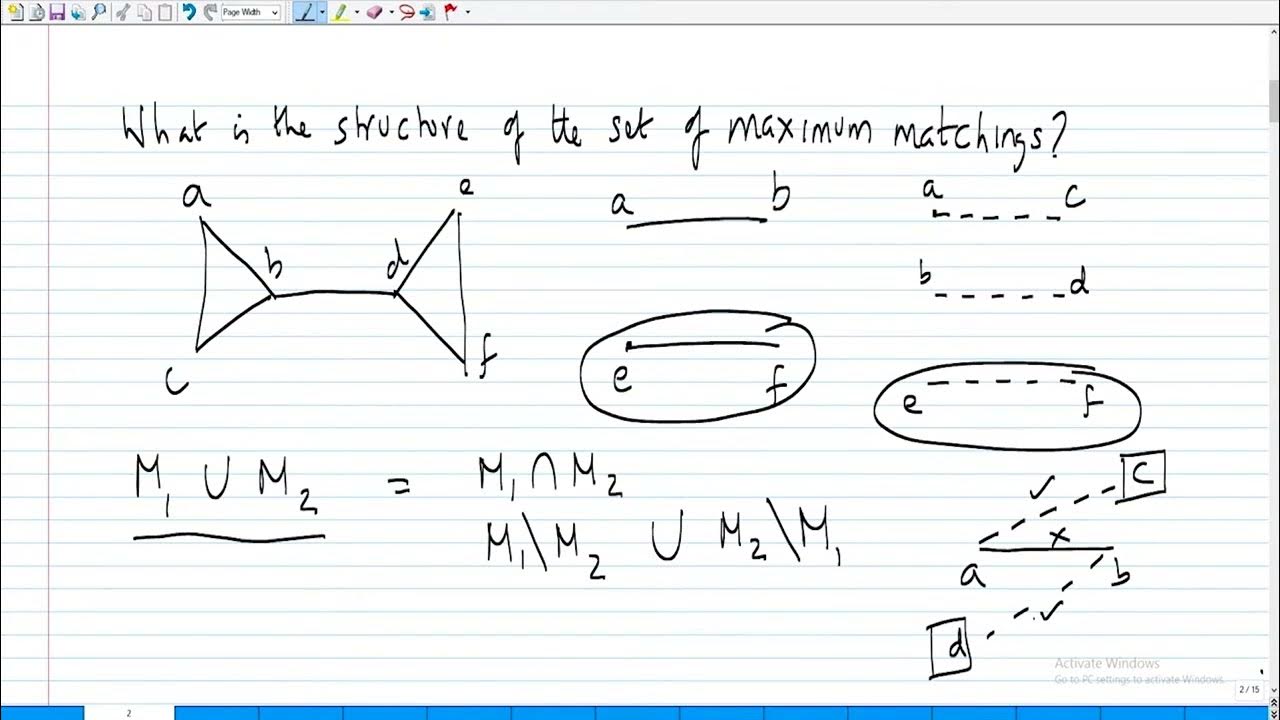 Page Width
What is the structure of the set of maximum matchings?
a e a b a c
b d b d
c f e f e f
M₁ ∪ M₂ = M₁ ∩ M₂
M₁\M₂ ∪ M₂\M₁
c
✓
×
a b
✓
d
Activate Windows
Go to PC settings to activate Windows.
2 / 15
2